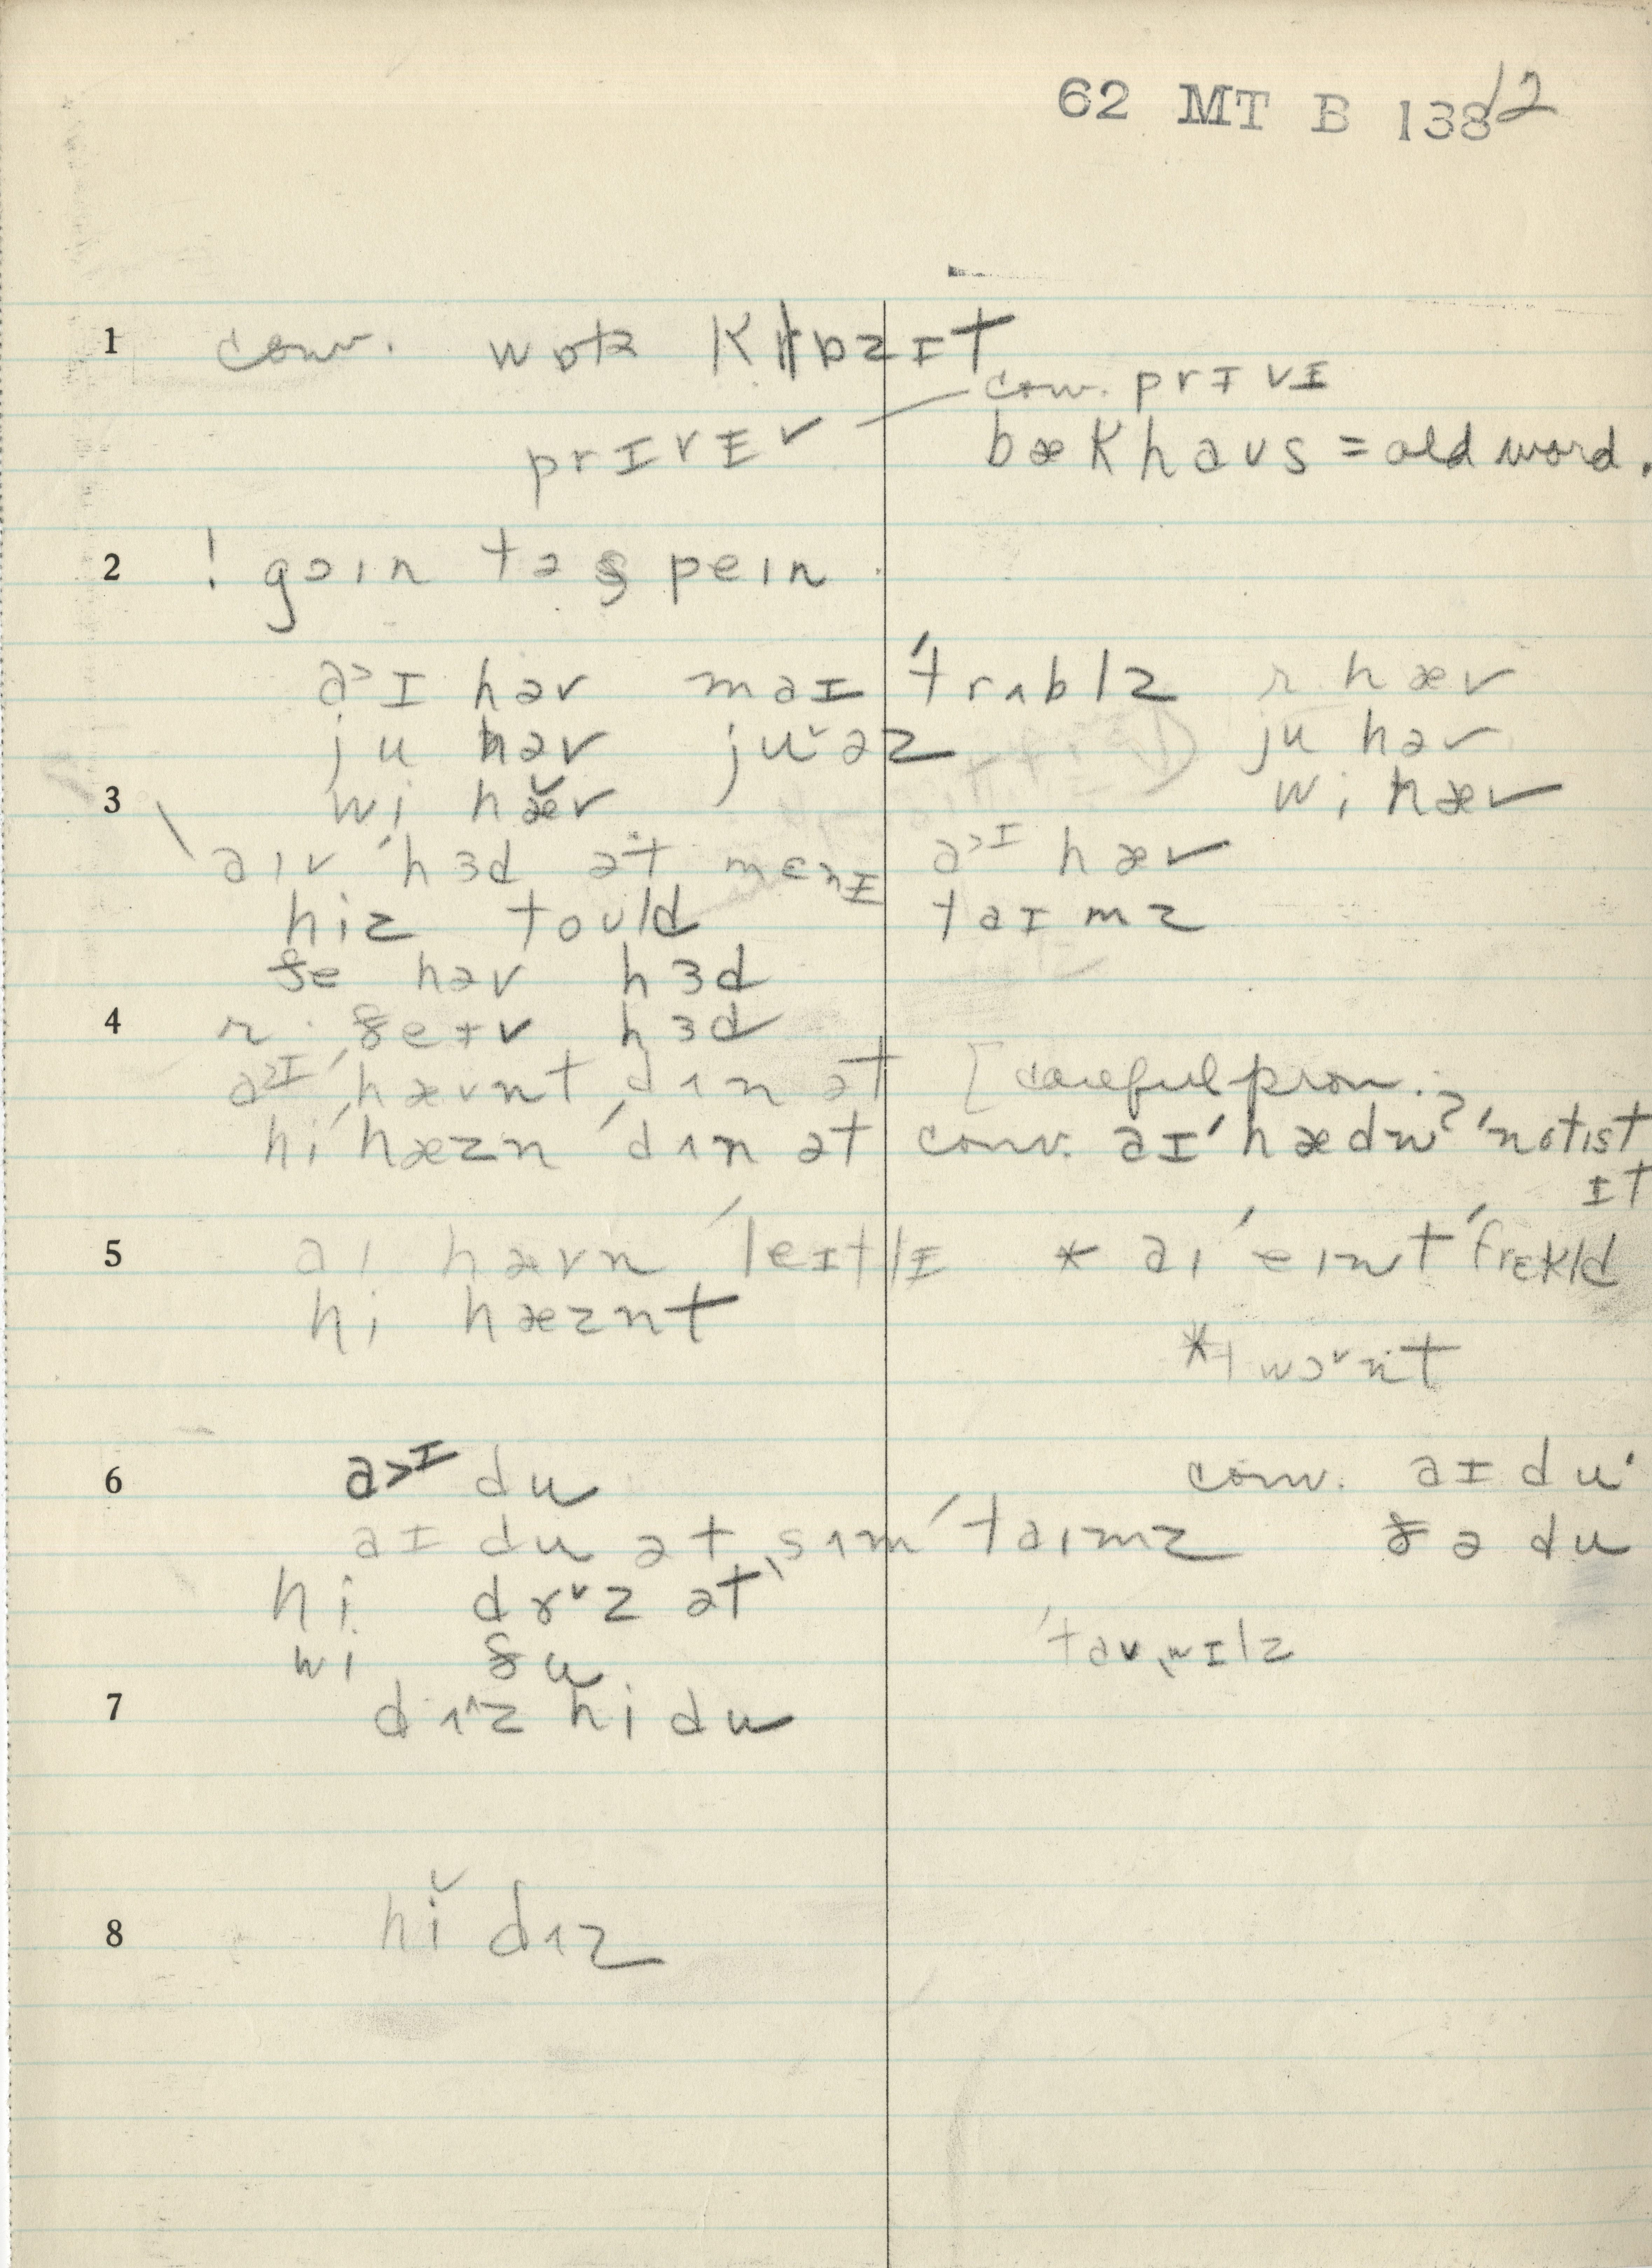 62 MT B 138 12
1 conv. wɒtɚ klɒzɪt
conv. prɪvɪ
prɪvɪ ✓ bækhaʊs = old word.
2 ! goɪn tə speɪn
a>ɪ həv maɪ ˈtrʌblz r. hæv
ju həv juˇəz ju həv
3 wi hæ̆v wi hæv
aɪv ˈhɜd ət mɛnɪ a>ɪ hæv
hiz toʊld taɪmz
ðe həv hɜd
4 r. ðeɪv hɜd
a>ɪ ˈhævnt dʌn ət [ careful pron.
hi ˈhæzn ˈdʌn ət conv. aɪ ˈhædnʔ ˈnotɪst
ɪt
5 aɪ hævn ˈleɪtlɪ * aɪ ˈeɪnt ˈfrɛkld
hi hæznt
*ɪ wɔˇnt
6 a>ɪ du conv. aɪ du·
aɪ du ət sʌmˈtaɪmz ðə du
hi dɤˇz ət
wi du ˈtaʊˌwɪlz
7 dʌ^z hi du
8 hĭ dʌz